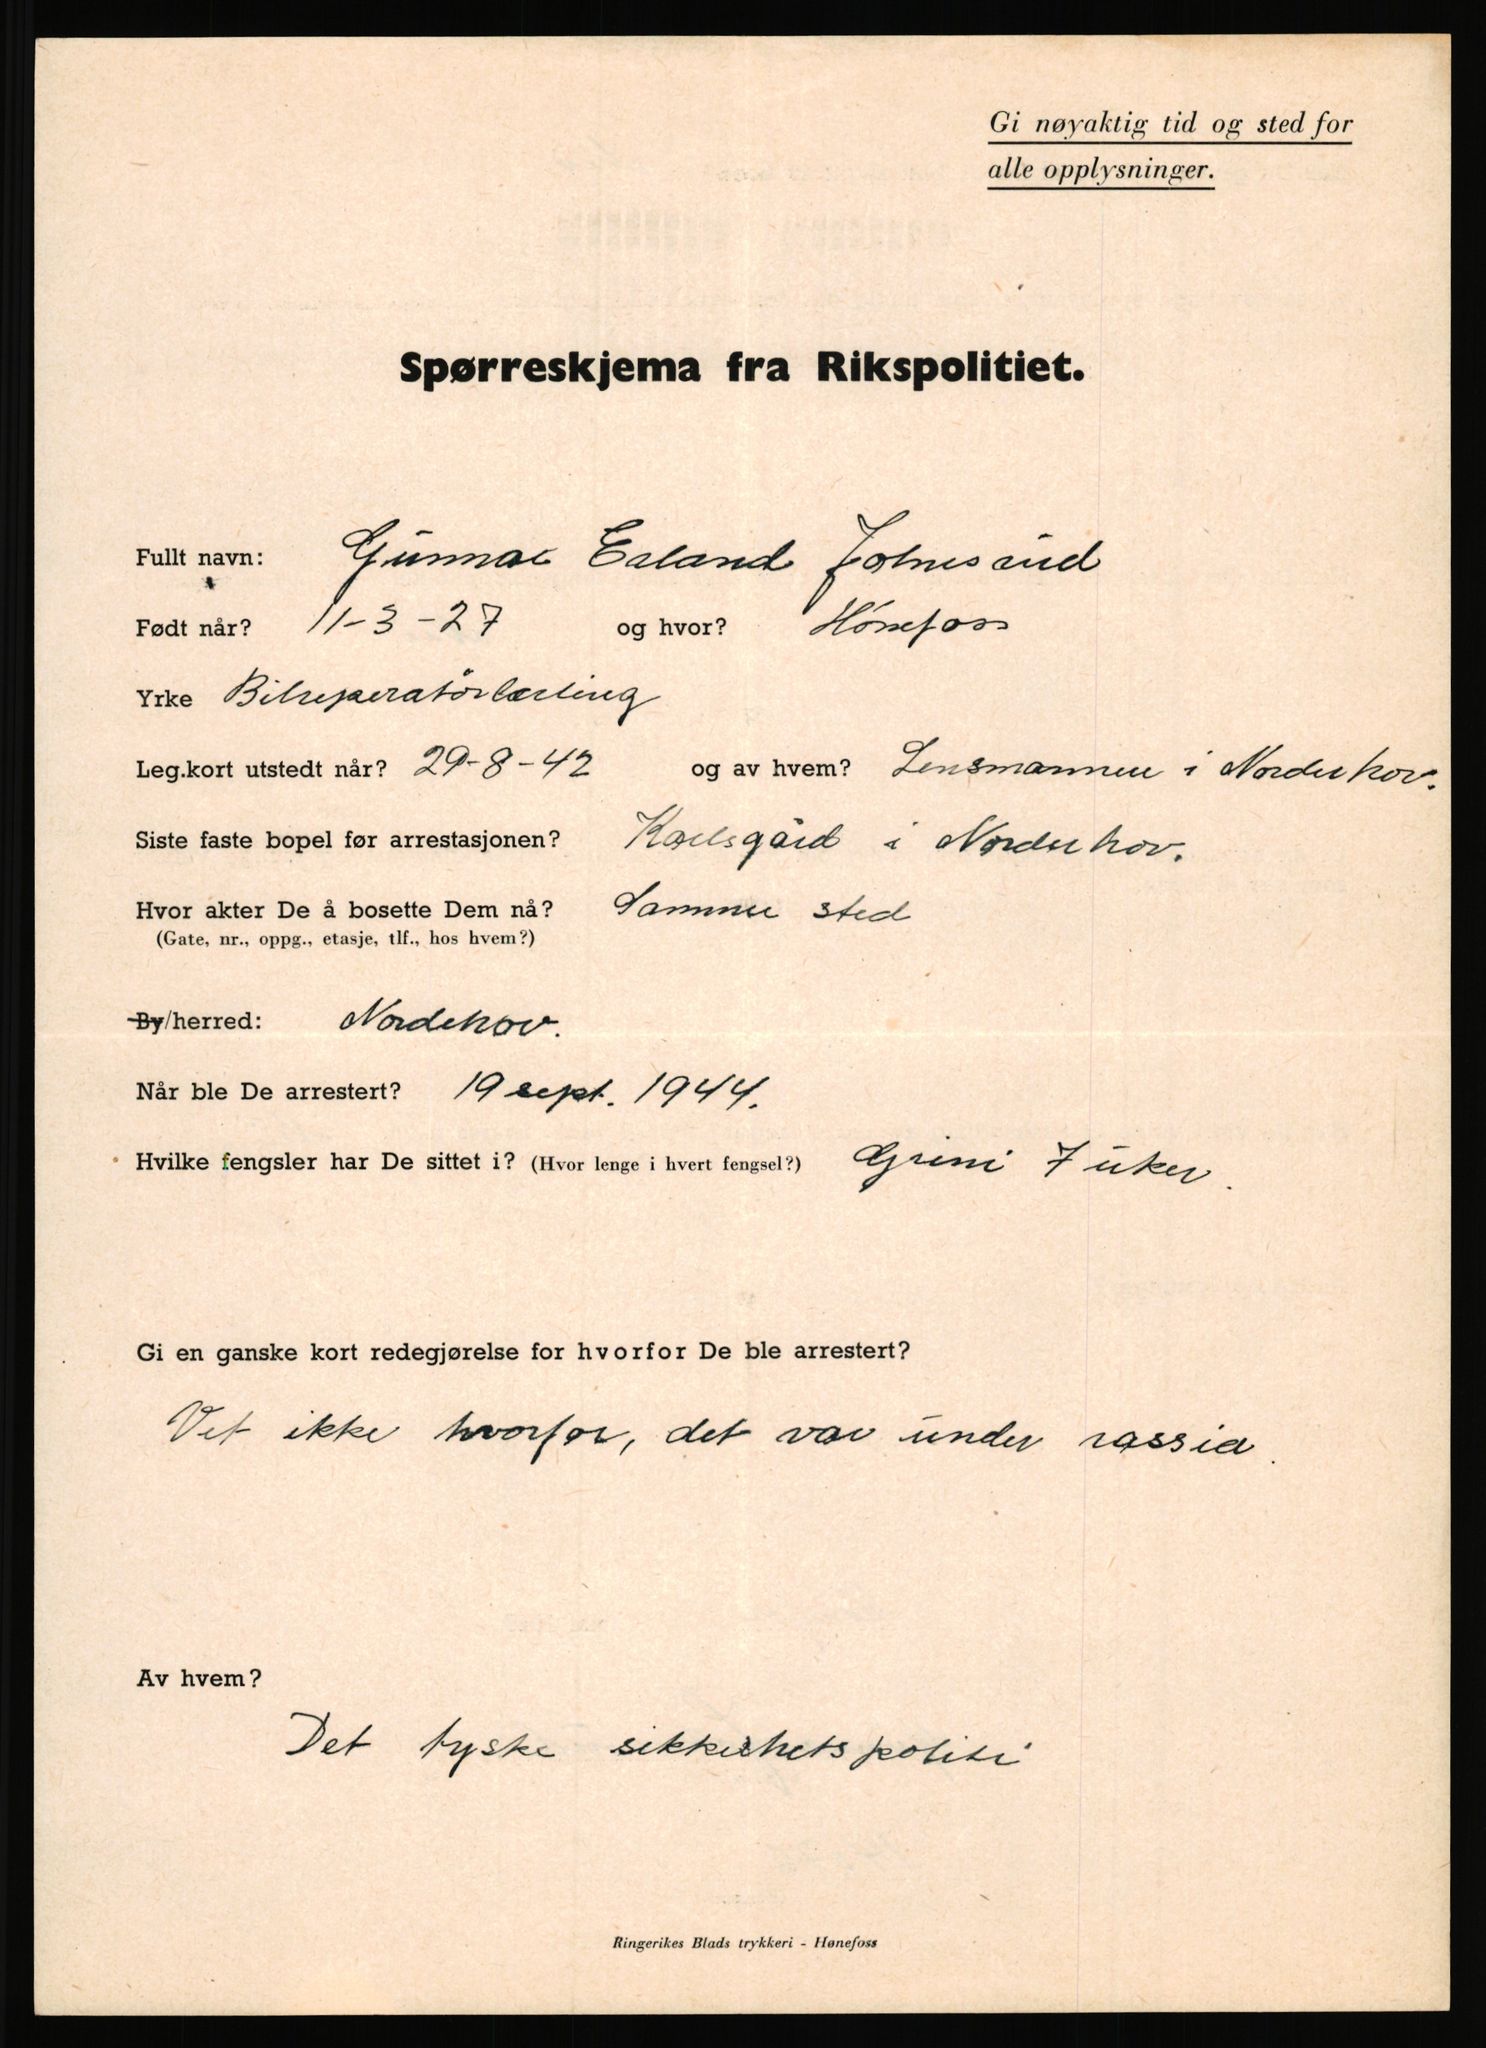 Gi nøyaktig tid og sted for
alle opplysninger.
Spørreskjema fra Rikspolitiet.
Fullt navn: Gunnar Erland Johnsrud
Født når? 11-3-27 og hvor? Hønefoss
Yrke Bilreperatørlærling
Leg.kort utstedt når? 29-8-42 og av hvem? Lensmannen i Norderhov.
Siste faste bopel før arrestasjonen? Karlsgård i Norderhov.
Hvor akter De å bosette Dem nå? Samme sted
(Gate, nr., oppg., etasje, tlf., hos hvem?)
By/herred: Norderhov.
Når ble De arrestert? 19 sept. 1944.
Hvilke fengsler har De sittet i? (Hvor lenge i hvert fengsel?) Grini 7 uker.
Gi en ganske kort redegjørelse for hvorfor De ble arrestert?
Vet ikke hvorfor, det var under rassia.
Av hvem?
Det tyske sikkerhetspoliti
Ringerikes Blads trykkeri - Hønefoss